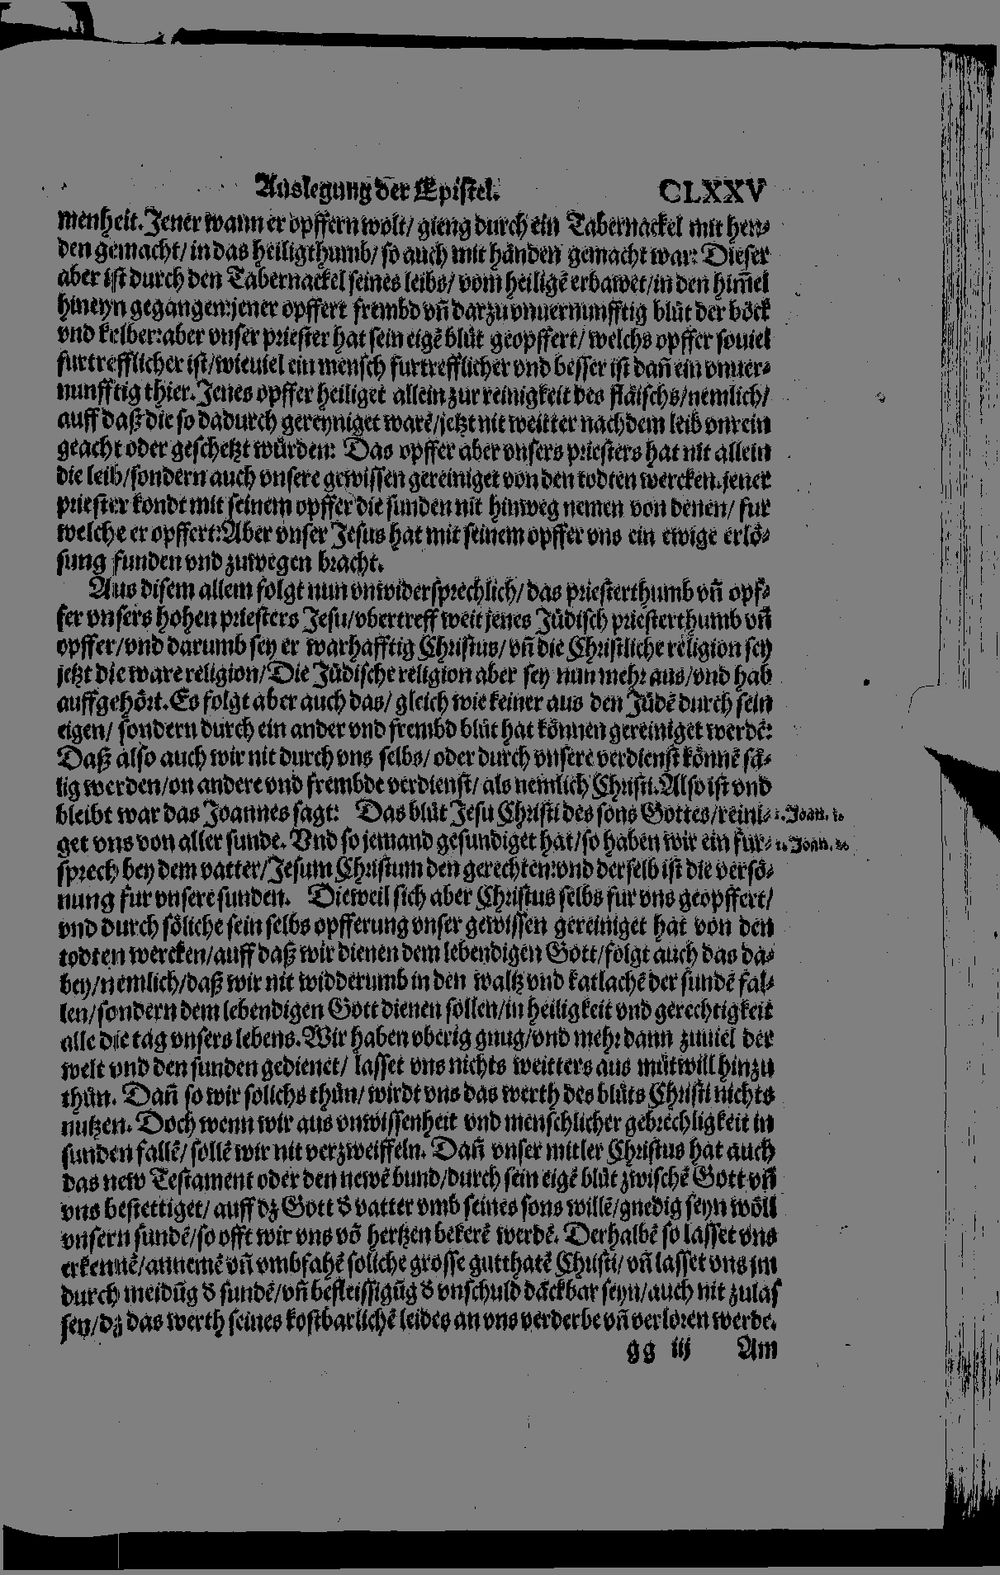 Auslegung der Epistel. CLXXV
menheit. Jener wann er opffern wolt/ gieng durch ein Tabernackel mit hen⸗
den gemacht/ in das heiligthumb/ so auch mit händen gemacht war: Dieser
aber ist durch den Tabernackel seines leibs/ vom heiligē erbawet/ in den him̄el
hineyn gegangen: jener opffert frembd vn̄ darzu vnuernunfftig blůt der böck
vnd kelber: aber vnser priester hat sein eigē blůt geopffert/ welchs opffer souiel
furtrefflicher ist/ wieuiel ein mensch furtrefflicher vnd besser ist dan̄ ein vnuer⸗
nunfftig thier. Jenes opffer heiliget allein zur reinigkeit des fläischs/ nemlich/
auff daß die so dadurch gereyniget warē/ jetzt nit weitter nach dem leib vnrein
geacht oder geschetzt würden: Das opffer aber vnsers priesters hat nit allein
die leib/ sondern auch vnsere gewissen gereiniget von den todten wercken. jener
priester kondt mit seinem opffer die sunden nit hinweg nemen von denen/ fur
welche er opffert: Aber vnser Jesus hat mit seinem opffer vns ein ewige erlö⸗
sung funden vnd zuwegen bracht.
Aus disem allem folgt nun vnwidersprechlich/ das priesterthumb vn̄ opf⸗
fer vnsers hohen priesters Jesu/ vbertreff weit jenes Jüdisch priesterthumb vn̄
opffer/ vnd darumb sey er warhafftig Christus/ vn̄ die Christliche religion sey
jetzt die ware religion/ Die Jüdische religion aber sey nun mehr aus/ vnd hab
auffgehört. Es folgt aber auch das/ gleich wie keiner aus den Jüdē durch sein
eigen/ sondern durch ein ander vnd frembd blůt hat können gereiniget werdē:
Daß also auch wir nit durch vns selbs/ oder durch vnsere verdienst könnē sä⸗
lig werden/ on andere vnd frembde verdienst/ als nemlich Christi. Also ist vnd
bleibt war das Joannes sagt: Das blůt Jesu Christi des sons Gottes/ reini⸗ 1. Joan. 1.
get vns von aller sunde. Vnd so jemand gesundiget hat/ so haben wir ein für⸗ 1. Joan. 2.
sprech bey dem vatter/ Jesum Christum den gerechten: vnd derselb ist die versö⸗
nung fur vnsere sunden. Dieweil sich aber Christus selbs fur vns geopffert/
vnd durch söliche sein selbs opfferung vnser gewissen gereiniget hat von den
todten wercken/ auff daß wir dienen dem lebendigen Gott/ folgt auch das da⸗
bey/ nemlich/ daß wir nit widderumb in den waltz vnd katlachē der sundē fal⸗
len/ sondern dem lebendigen Gott dienen sollen/ in heiligkeit vnd gerechtigkeit
alle die tag vnsers lebens. Wir haben vberig gnug/ vnd mehr dann zuuiel der
welt vnd den sunden gedienet/ lasset vns nichts weitters aus můtwill hinzu
thůn. Dan̄ so wir solichs thůn/ wirdt vns das werth des blůts Christi nichts
nutzen. Doch wenn wir aus vnwissenheit vnd menschlicher gebrechligkeit in
sunden fallē/ sollē wir nit verzweiffeln. Dan̄ vnser mitler Christus hat auch
das new Testament oder den newē bund/ durch sein eigē blůt zwischē Gott vn̄
vns bestettiget/ auff dz Gott d̕ vatter vmb seines sons willē/ gnedig seyn wöll
vnsern sundē/ so offt wir vns vō hertzen bekerē werdē. Derhalbē so lasset vns
erkennē/ annemē vn̄ vmbfahē soliche grosse gutthatē Christi/ vn̄ lasset vns jm
durch meidūg d̕ sundē/ vn̄ befleissigūg d̕ vnschuld däckbar seyn/ auch nit zulas
sen/ dz das werth seines kostbarlichē leides an vns verderbe vn̄ verloren werde.
gg iij Am